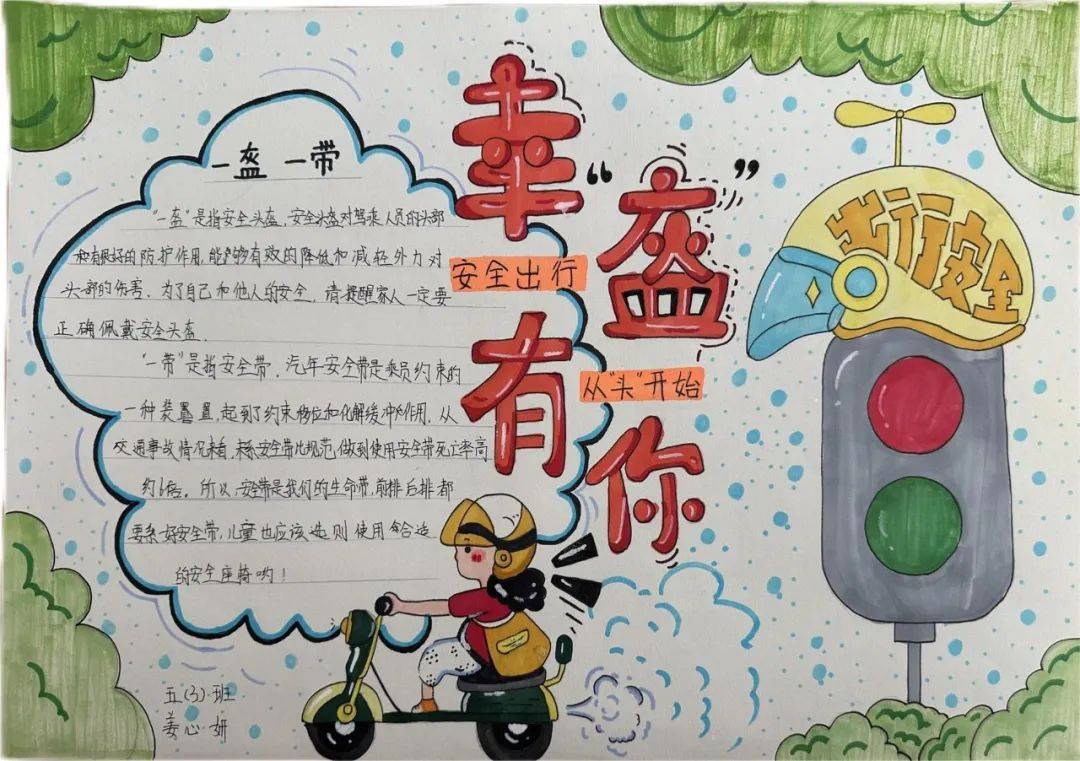 幸“盔”有你
安全出行
从“头”开始
出行安全
一盔 一带
“一盔”是指安全头盔,安全头盔对驾乘人员的头部
有很好的防护作用,能够有效的降低和减轻外力对
头部的伤害.为了自己和他人的安全,请提醒家人一定要
正确佩戴安全头盔.
“一带”是指安全带.汽车安全带是乘员约束的
一种装置,起到了约束移位和化解缓冲作用.从
交通事故情况来看,未系安全带比规范,做到使用安全带死亡率高
约6倍。所以,安全带是我们的生命带,前排后排都
要系好安全带,儿童也应该选则使用合适
的安全座椅哟!
五(3)班
姜心妍